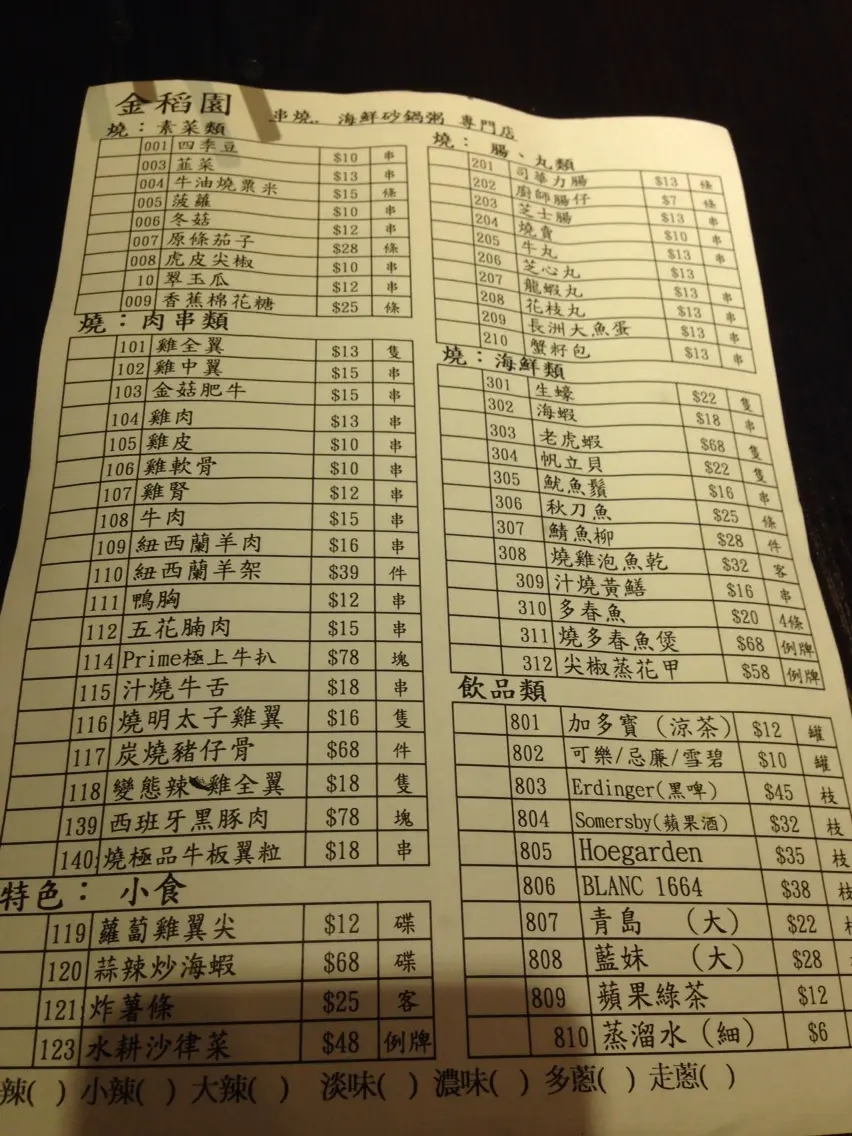 金稻園 串燒. 海鮮砂鍋粥 專門店
燒：素菜類
001 四季豆 $10 串
003 韮菜 $13 串
004 牛油燒粟米 $15 條
005 菠蘿 $10 串
006 冬菇 $12 串
007 原條茄子 $28 條
008 虎皮尖椒 $10 串
10 翠玉瓜 $12 串
009 香蕉棉花糖 $25 條
燒：肉串類
101 雞全翼 $13 隻
102 雞中翼 $15 串
103 金菇肥牛 $15 串
104 雞肉 $13 串
105 雞皮 $10 串
106 雞軟骨 $10 串
107 雞腎 $12 串
108 牛肉 $15 串
109 紐西蘭羊肉 $16 串
110 紐西蘭羊架 $39 件
111 鴨胸 $12 串
112 五花腩肉 $15 串
114 Prime極上牛扒 $78 塊
115 汁燒牛舌 $18 串
116 燒明太子雞翼 $16 隻
117 炭燒豬仔骨 $68 件
118 變態辣 雞全翼 $18 隻
139 西班牙黑豚肉 $78 塊
140 燒極品牛板翼粒 $18 串
特色： 小食
119 蘿蔔雞翼尖 $12 碟
120 蒜辣炒海蝦 $68 碟
121 炸薯條 $25 客
123 水耕沙律菜 $48 例牌
燒：腸、丸類
201 司華力腸 $13 條
202 廚師腸仔 $7 條
203 芝士腸 $13 串
204 燒賣 $10 串
205 牛丸 $13
206 芝心丸 $13 串
207 龍蝦丸 $13 串
208 花枝丸 $13 串
209 長洲大魚蛋 $13 串
210 蟹籽包
燒：海鮮類
301 生蠔 $22 隻
302 海蝦 $18 串
303 老虎蝦 $68 隻
304 帆立貝 $22 隻
305 魷魚鬚 $16 串
306 秋刀魚 $25 條
307 鯖魚柳 $28 件
308 燒雞泡魚乾 $32 客
309 汁燒黃鱔 $16 串
310 多春魚 $20 4條
311 燒多春魚煲 $68 例牌
312 尖椒蒸花甲 $58 例牌
飲品類
801 加多寶（涼茶） $12 罐
802 可樂/忌廉/雪碧 $10 罐
803 Erdinger(黑啤) $45 枝
804 Somersby(蘋果酒) $32 枝
805 Hoegarden $35 枝
806 BLANC 1664 $38 枝
807 青島 （大） $22
808 藍妹 （大） $28
809 蘋果綠茶 $12
810 蒸溜水（細） $6
辣( ) 小辣( ) 大辣( ) 淡味( ) 濃味( ) 多蔥( ) 走蔥( )